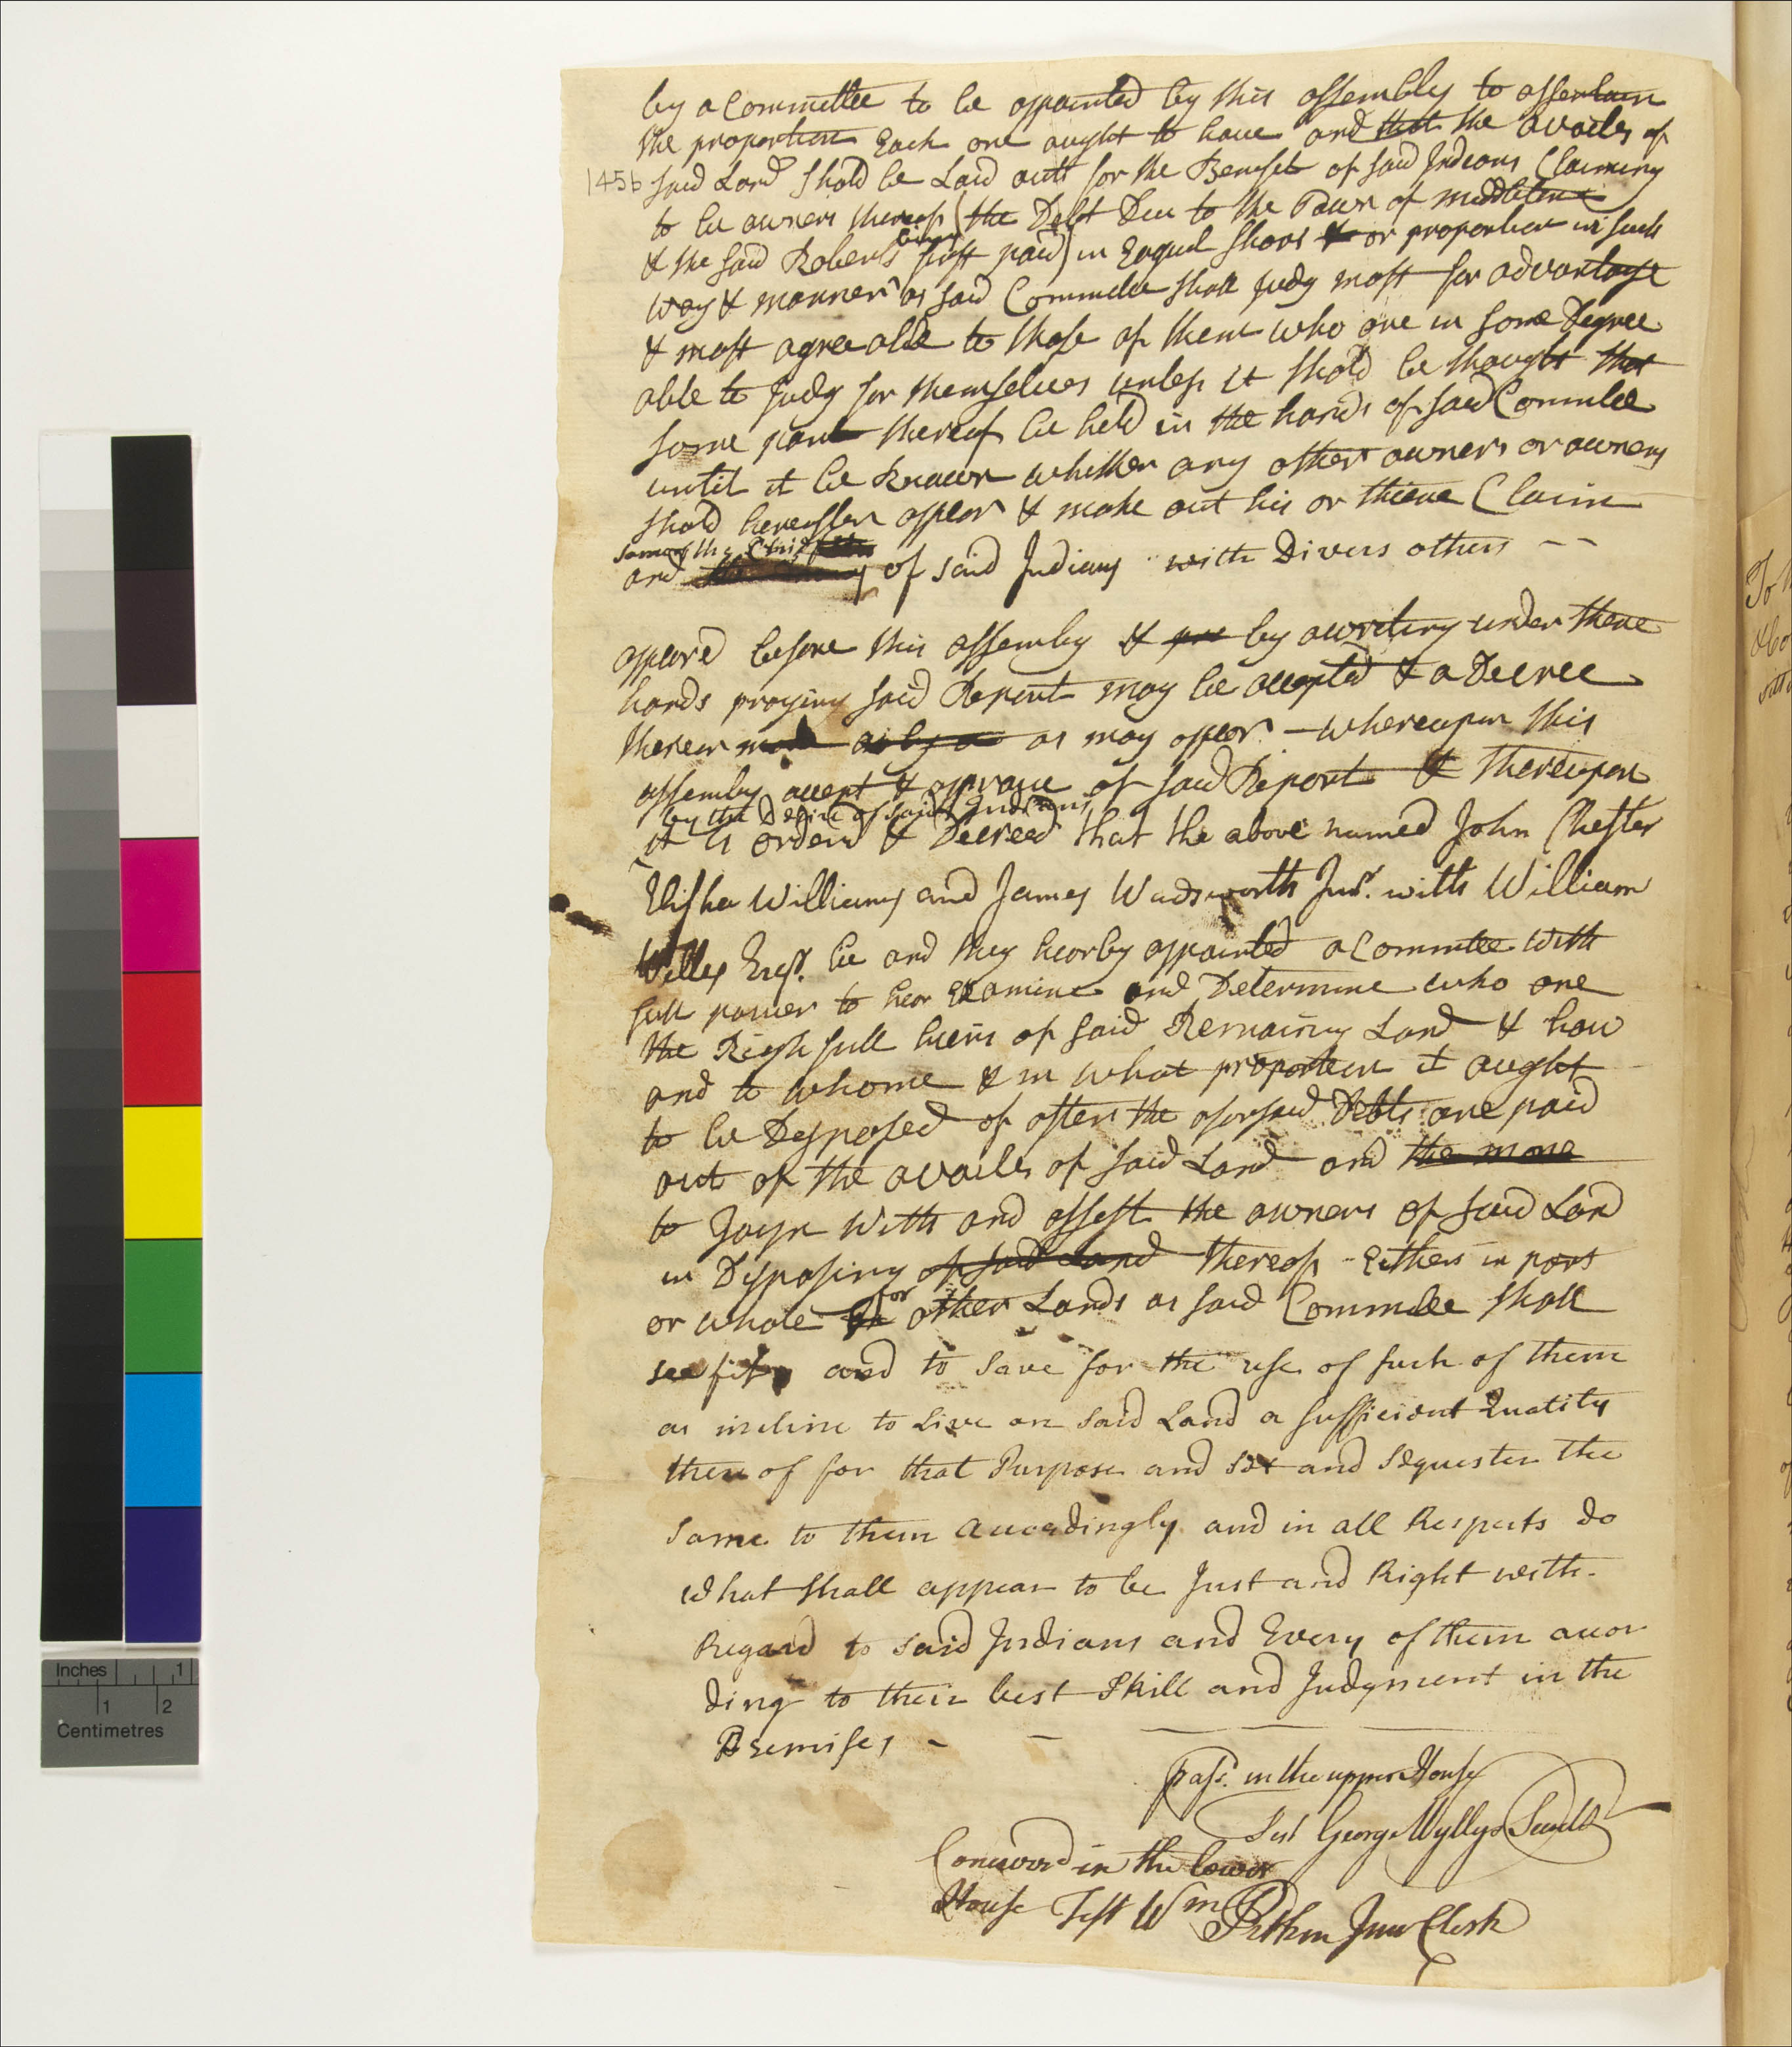 by a Committee to be appointed by this assembly to assertain
the proportion Each one ought to have and that the availes of
145b
said Land Shold be Laid outt for the Benefit of said Indians Claiming
to be owners thereof (the Debt Due to the Town of middletown
& the said Roberts being first paid) in Eaquel Shars & or proportion in such
way & manner as said Committee shall judg most for advantage
& most agreeable to those of them who are in some Degree
able to Judg for themselves unless it shold be thought that
some part thereof be held in the hands of said Commitee
until it be known whither any other owners or owners
shold hereafter appear & make out his or theire Claim
some of the Chief
and of said Indians with Divers others --
appeard before this assembly & pre by a writing under theire
hands praying said Report may be accepted & a Decree
thereon made as by a as may appear - whereupon this
assembly accept & approve of said Report & thereupon
by the Desire of said Indians
it is orderd & Decreed that the above named John Chester
Elisha Williams and James Wadsworth Junr. with William
Welles Esqr. be and they hearby appointed a Commitee with
full power to hear Examine and Determine who are
the Righfull heirs of said Remaining Land & how
and to whome & in what proportion it ought
to be Desposed of after the aforsaid Debts are paid
out of the availes of said Land and the mone
to Joyn With and assest the owners of said Land
in Disposing of said Land thereof - Eithers in part
or whole for other Lands as said Commitee shall
see fit, and to Save for the use of such of them
as incline to Live on said Land a sufficient Quatity
there of for that Purpose and set and sequester the
same to them Accordingly and in all Respects do
what shall appear to be Just and Right with
Regard to said Indians and Every of them accor
ding to their best Skill and Judgment in the
Premises - -
Pass'd. in the upper House
Test George Wyllys Secretr
Concurrd in the lower
House Test Wm Pitkin Junr Clerk
To